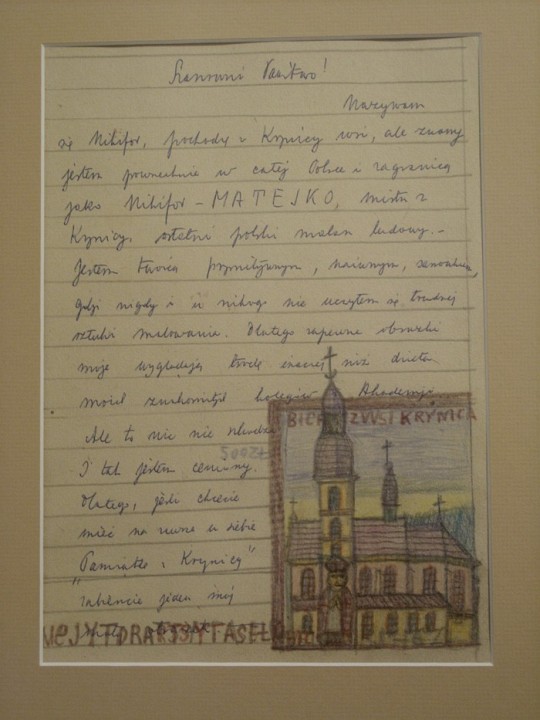 Szanowni Państwo!
Nazywam
się Nikifor, pochodzę z Krynicy wsi, ale znany
jestem powszechnie w całej Polsce i zagranicą
jako Nikifor - MATEJKO, mistrz z
Krynicy, ostatni polski malarz ludowy. -
Jestem twórcą prymitywnym, naiwnym, samoukiem,
gdyż nigdy i u nikogo nie uczyłem się trudnej
sztuki malowania. Dlatego zapewne obrazki
moje wyglądają trochę inaczej niż dzieła
moich znakomitych kolegów z Akademji.
Ale to nic nie szkodzi
500ZŁ
I tak jestem ceniony.
Dlatego, jeśli chcecie
mieć na u siebie
"Pamiątkę z Krynicy"
zabierzcie jeden mój
mały
BIE ZWSI KRYNICA